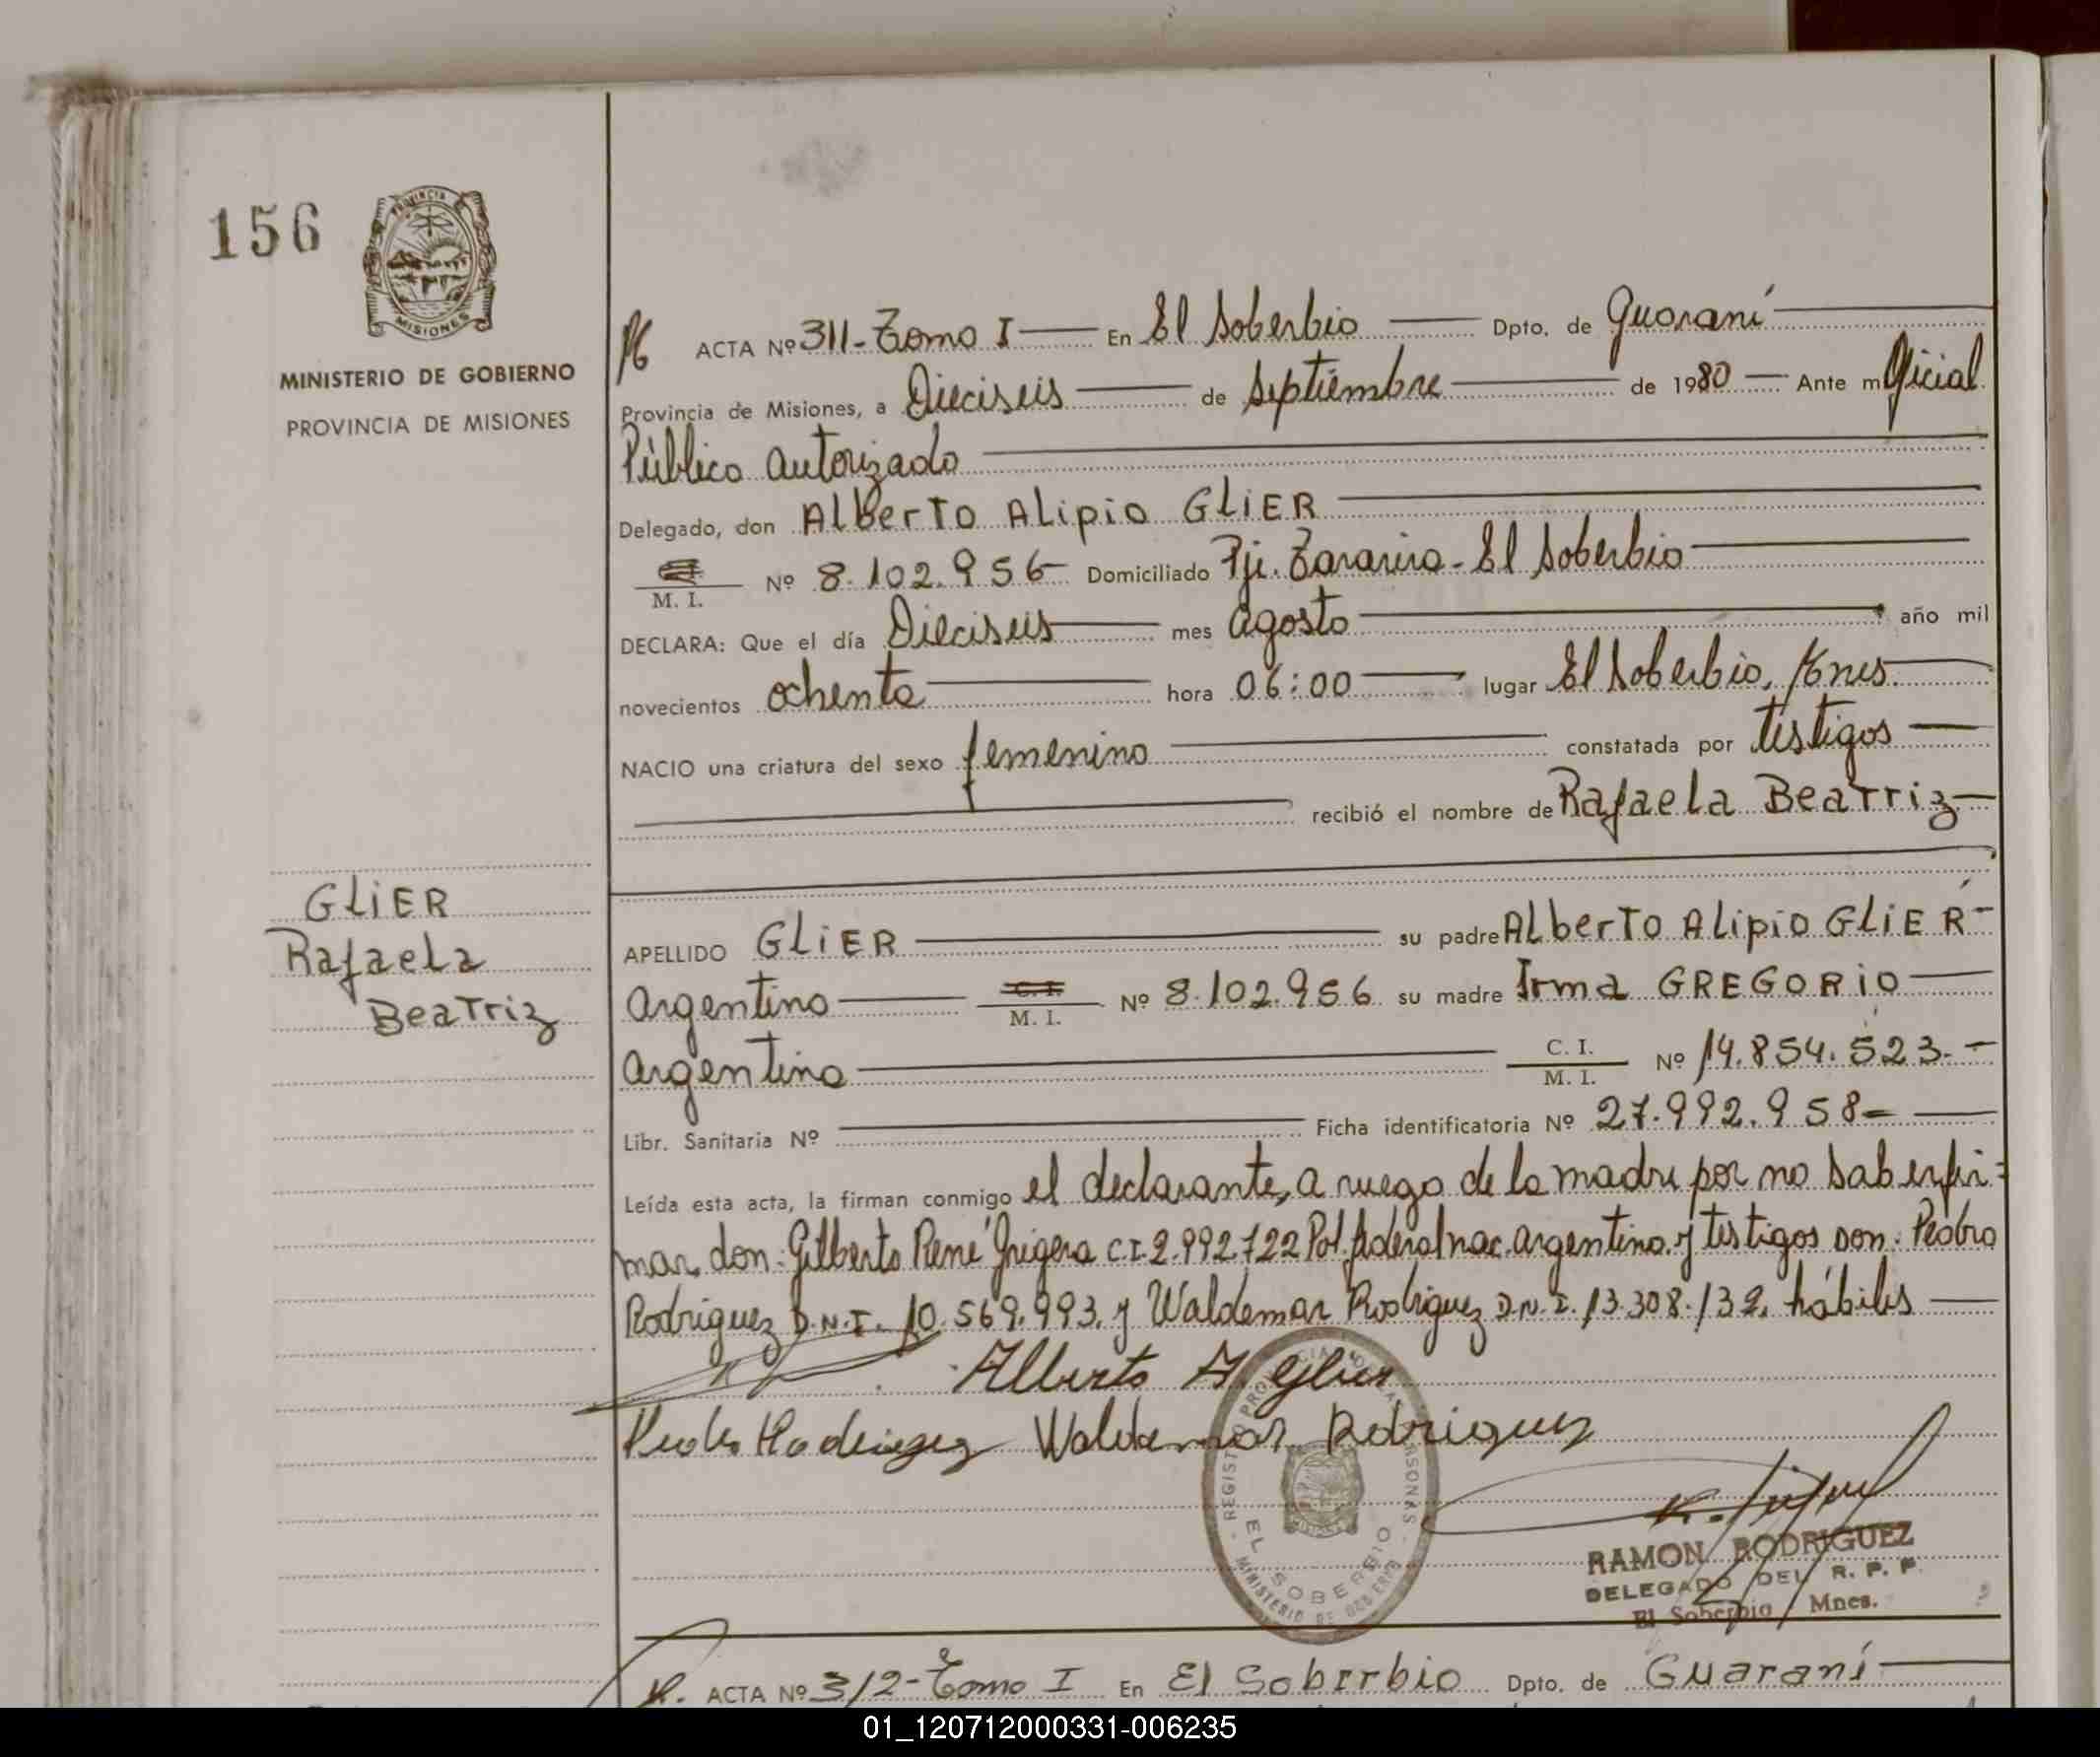 156
PROVINCIA
MISIONES
MINISTERIO DE GOBIERNO
PROVINCIA DE MISIONES
ACTA Nº 311-Tomo I En El Soberbio Dpto. de Guaraní
Provincia de Misiones, a Dieciseis de Septiembre de 1980 Ante m Oficial
Público autorizado
Delegado, don Alberto Alipio GLiER
M. I. Nº 8.102.956 Domiciliado Pje. El Soberbio
DECLARA: Que el día Dieciseis mes agosto año mil
novecientos ochenta hora 06:00 lugar El Soberbio, Mnes.
NACIO una criatura del sexo femenino constatada por testigos
recibió el nombre de Rafaela Beatriz
GLiER
Rafaela
Beatriz
APELLIDO GLiER su padre Alberto Alipio GLiER
argentino C. I. M. I. Nº 8.102.956 su madre Irma GREGORiO
argentina C. I. M. I. Nº 14.854.523.-
Libr. Sanitaria Nº Ficha identificatoria Nº 27.992.958-
Leída esta acta, la firman conmigo el declarante, a ruego de la madre por no saber fir=
mar, don: Gilberto René Grigera C.I. 2.992.722 Pol. federal nac. argentino. y testigos Don: Pedro
Rodriguez D.N.I. 10.569.993. y Waldemar Rodriguez D.N.I. 13.308.139, hábiles
Alberto A. Glier
Pedro Rodriguez Waldemar Rodriguez
REGISTRO PROVINCIAL DE LAS PERSONAS
EL SOBERBIO
MINISTERIO DE GOBIERNO
RAMON RODRIGUEZ
DELEGADO DEL R. P. P.
El Soberbio Mnes.
ACTA Nº 312-Tomo I En El Soberbio Dpto. de Guaraní
01_120712000331-006235